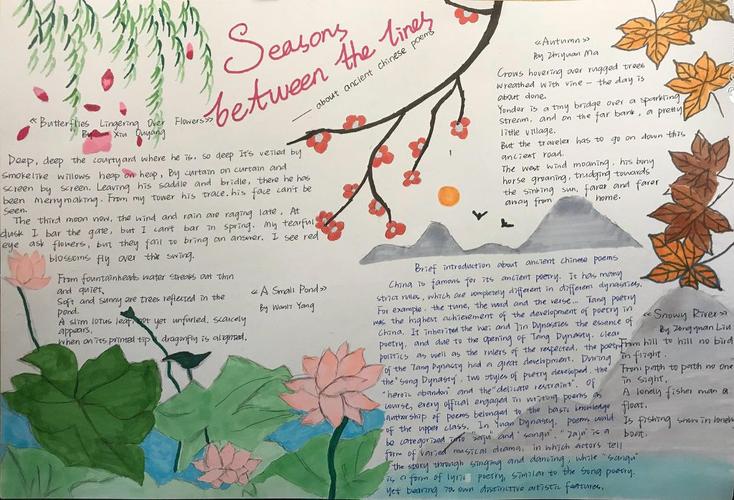 Seasons
between the lines
— about ancient chinese poems
《Butterflies Lingering Over Flowers》
By Xiu Ouyang
Deep, deep the courtyard where he is, so deep It's veiled by
smokelike willows heap on heap, By curtain on curtain and
screen by screen. Leaving his saddle and bridle, there he has
been merrymaking. From my tower his trace, his face can't be
seen.
The third moon now, the wind and rain are raging late, At
dusk I bar the gate, but I can't bar in spring. My tearful
eye ask flowers, but they fail to bring an answer. I see red
blossoms fly over the swing.
《A Small Pond》
By Wanli Yang
From fountainheads water streas out thin
and quiet,
Soft and sunny are trees reflected in the
pond.
A slim lotus leaf, not yet unfurled, scarcely
appears,
When on its printed tip a dragonfly is aligned.
《Autumn》
By Zhiyuan Ma
Crows hovering over rugged trees
wreathed with vine — the day is
about done.
Yonder is a tiny bridge over a sparkling
stream, and on the far bank, a pretty
little village.
But the traveler has to go on down this
ancient road.
The west wind moaning, his bony
horse groaning, trudging towards
the sinking sun, farer and farer
away from home.
Brief introduction about ancient chinese poems
China is famous for its ancient poetry. It has many
strict rules, which are completely different in different dynasties.
For example, the tune, the word and the verse... Tang poetry
was the highest achievement of the development of poetry in
China. It inherited the Wei and Jin Dynasties the essence of
poetry, and due to the opening of Tang Dynasty, clear
politics as well as the rulers of the respected, the poetry
of the Tang Dynasty had a great development. During
the "Song Dynasty", two styles of poetry developed, the
"heroic abandon" and the "delicate restraint". Of
course, every official engaged in writing poems as
authorship of poems belonged to the basic knowledge
of the upper class. In Yuan Dynasty, poems could
be categorized into "zaju" and "sanqu". "Zaju" is a
form of varied musical drama, in which actors tell
the story through singing and dancing, while "sanqu"
is a form of lyric poetry, similar to the Song poetry.
Yet bearing its own distinctive artistic features.
《Snowy River》
By Zongyuan Liu
From hill to hill no bird
in flight.
From path to path no one
in sight.
A lonely fisher man a
float.
Is fishing snow in lonely
boat.